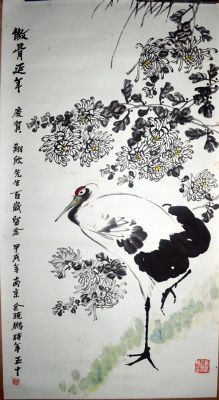 傲骨延年
慶賀 翔欣先生百歲留念
甲戌年南京
鵬時年五十